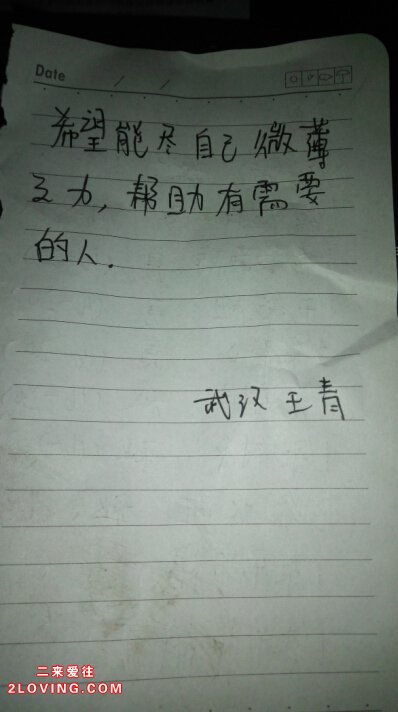 Date / /
希望能尽自己微薄
之力,帮助有需要
的人.
武汉 王青
二来爱往
2LOVING.COM